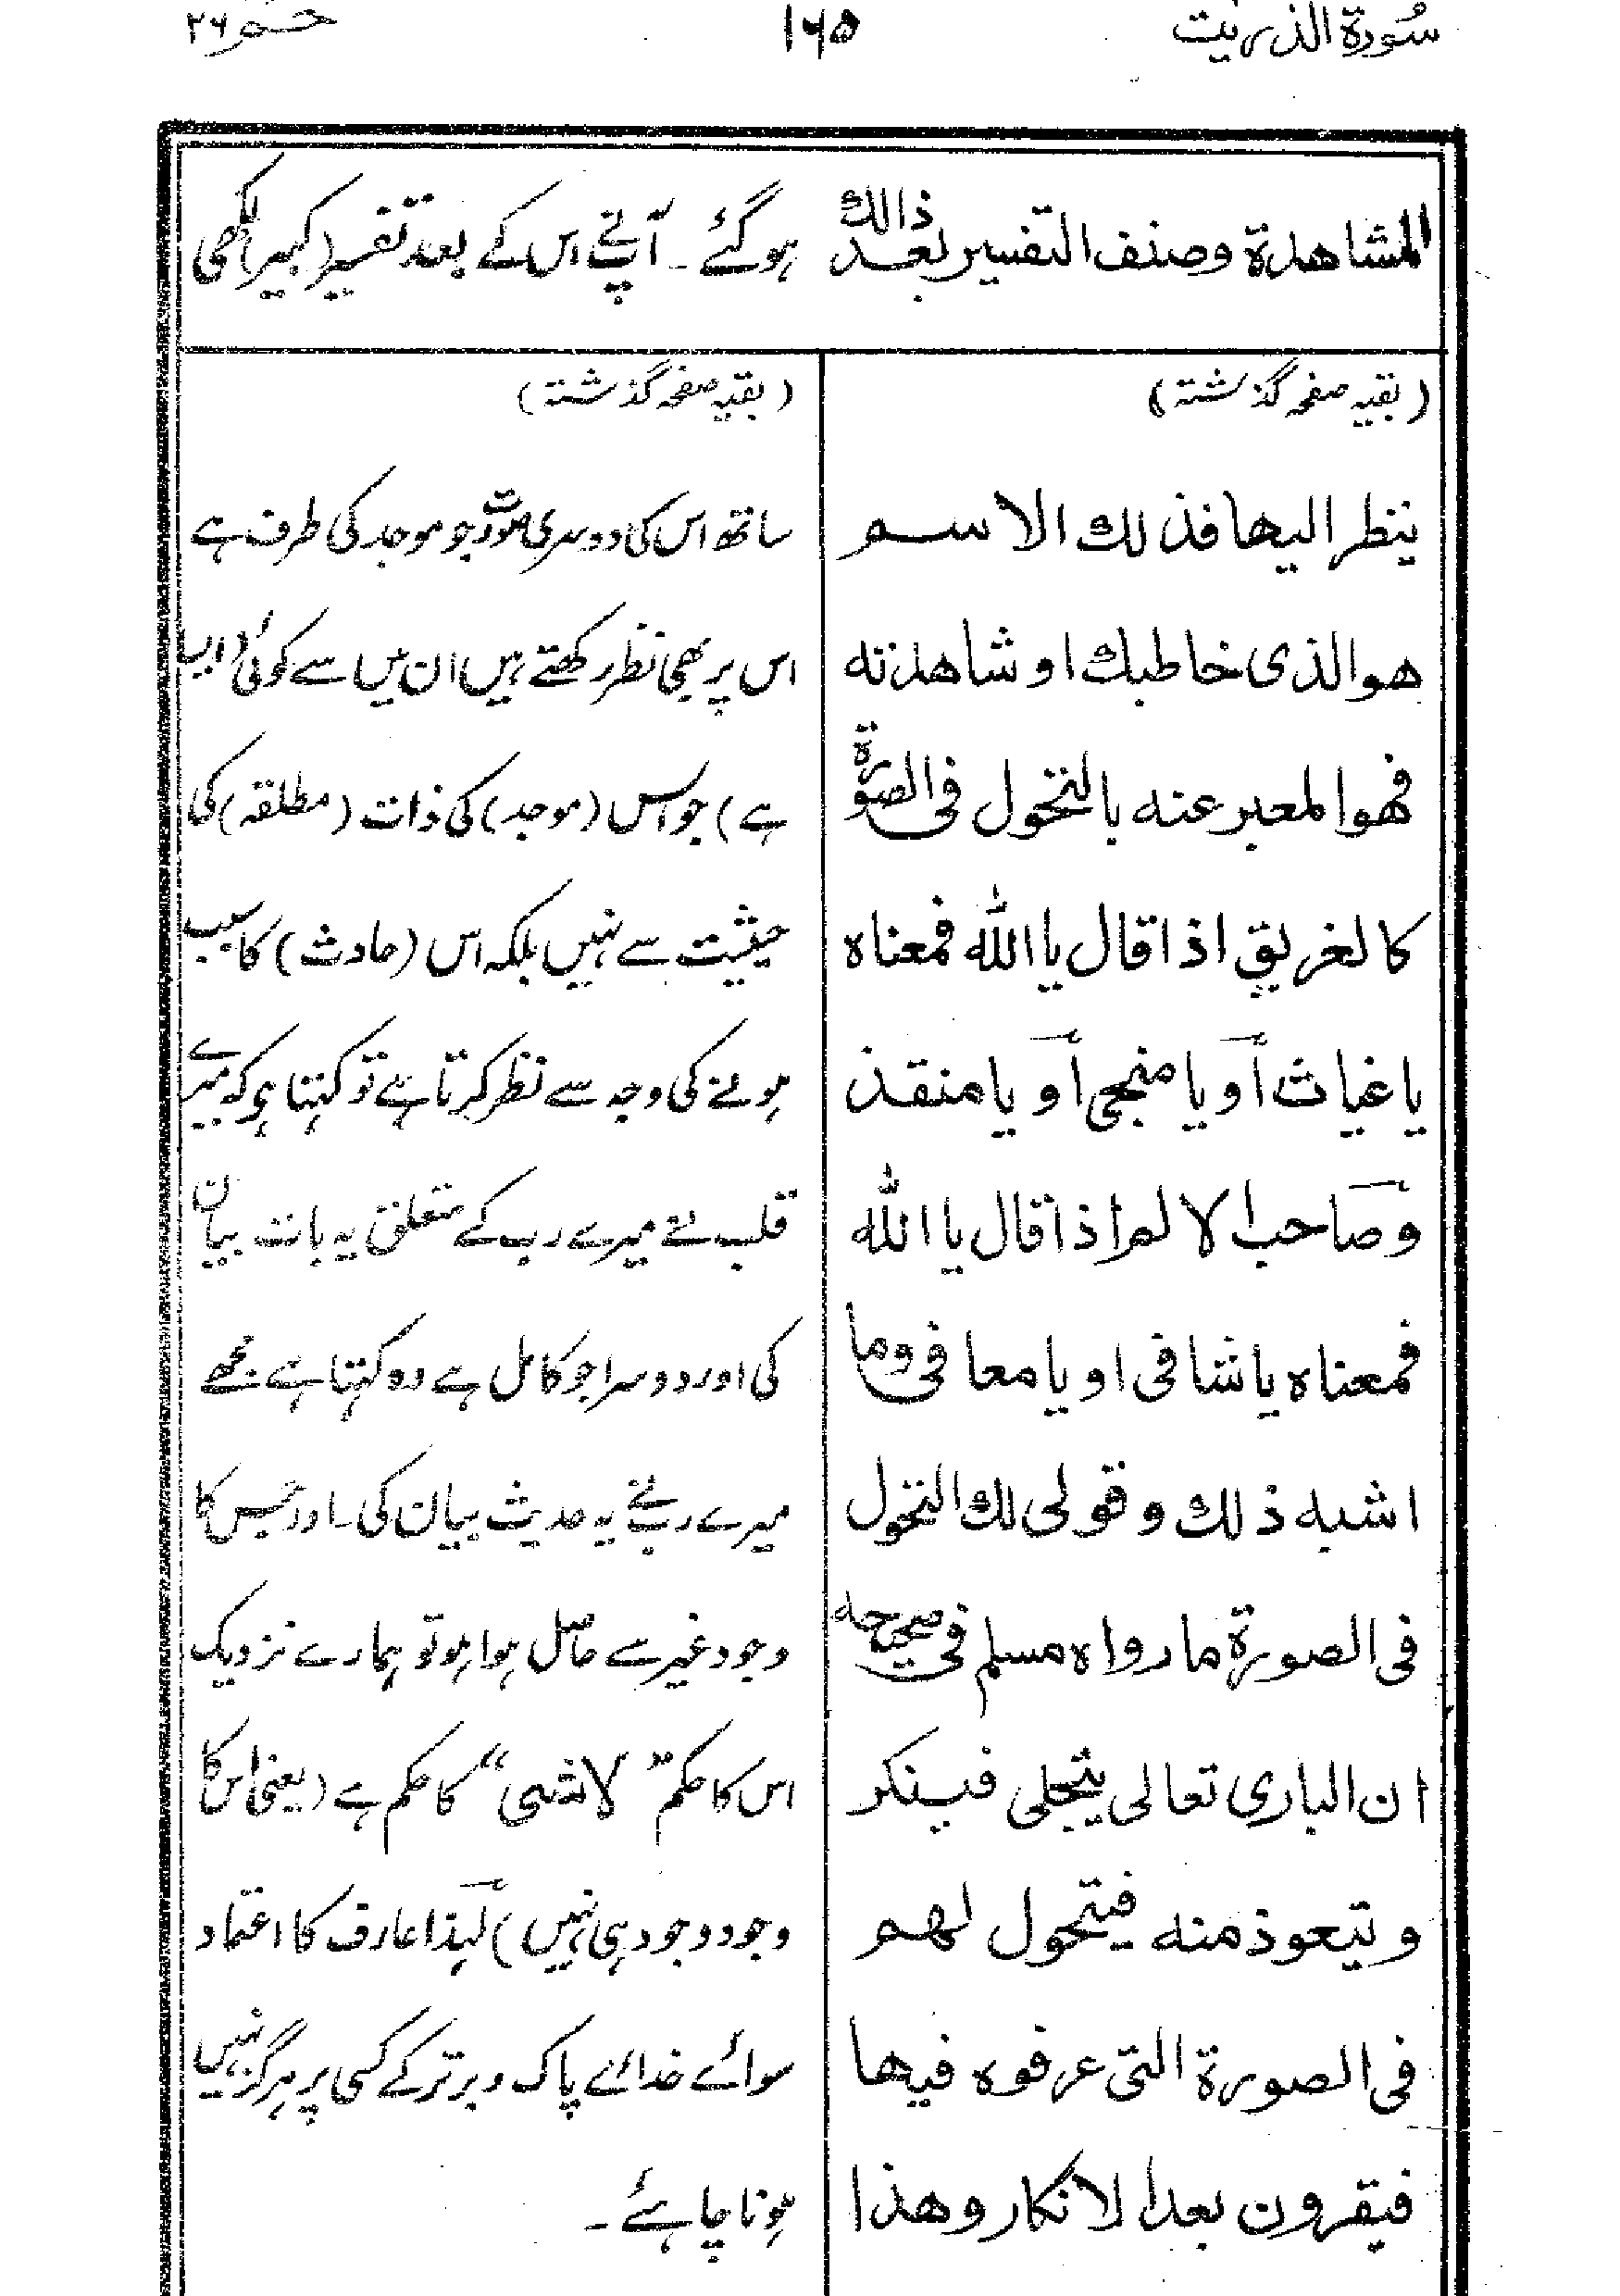 سُورة الذریٰت ۱۶۵ حٰمٓ ۲۶
المشاهدة وصنف التفسير بعد ذالك
ہوگئے ۔ آپنے اس کے بعد تفسیر (کبیر) لکھی
(بقیہ صفحہ گذشتہ)
ينظر اليها فذلك الاسم
هوالذى خاطبك او شاهدته
فهوالمعبر عنه بالتحول فى الصورة
كالغريق اذا قال يا الله فمعناه
يا غياث أو يا منجى أو يا منقذ
وصاحب الالم اذا قال يا الله
فمعناه يا شافى او يا معافى وما
اشبه ذلك وقولى لك التحول
فى الصورة ما رواه مسلم فى صحيحه
ان البارى تعالى يتجلى فينكر
و يتعوذ منه فيتحول لهم
فى الصورة التى عرفوه فيها
فيقرون بعد الانكار وهذا
(بقیہ صفحہ گذشتہ)
ساتھ اس کی دوسری صورت جو موجد کی طرف ہے
اس پر بھی نظر رکھتے ہیں ان میں سے کوئی (ایسا
ہے) جو اس (موجد) کی ذات (مطلقہ) کی
حیثیت سے نہیں بلکہ اس (حادث) کا سبب
ہونے کی وجہ سے نظر کرتا ہے تو کہتا ہے کہ میرے
قلب نے میرے رب کے متعلق یہ بات بیان
کی اور دوسرا جو کامل ہے وہ کہتا ہے مجھے
میرے ربنے یہ حدیث بیان کی۔ اور جس کا
وجود غیر سے حاصل ہوا ہو تو ہمارے نزدیک
اس کا حکم "لاشی" کا حکم ہے (یعنی اس کا
وجود وجود ہی نہیں) لہٰذا عارف کا اعتماد
سوائے خدائے پاک و برتر کے کسی پر ہرگز نہیں
ہونا چاہئے ۔